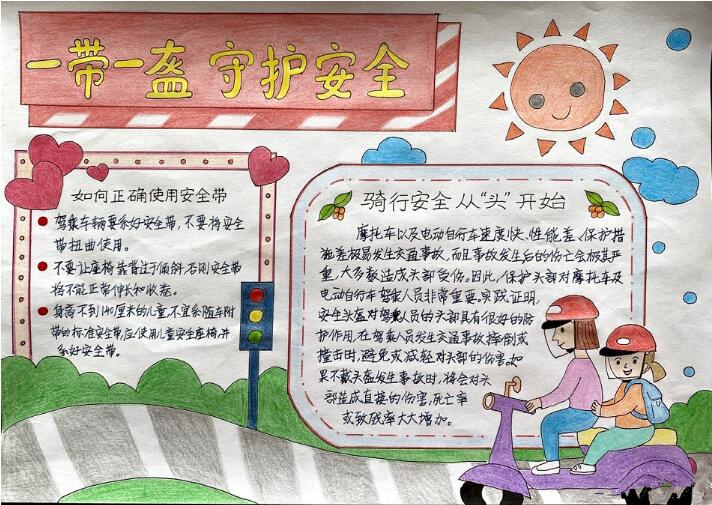 一带一盔 守护安全
如何正确使用安全带
驾乘车辆要系好安全带,不要将安全
带扭曲使用。
不要让座椅靠背过于倾斜,否则安全带
将不能正常伸长和收卷。
身高不到140厘米的儿童,不宜系随车附
带的标准安全带,应使用儿童安全座椅,并
系好安全带。
骑行安全 从“头”开始
摩托车以及电动自行车速度快、性能差、保护措
施差极易发生交通事故,而且事故发生后的伤亡会极其严
重,大多数造成头部受伤。因此,保护头部对摩托车及
电动自行车驾乘人员非常重要.实践证明,
安全头盔对驾乘人员的头部具有很好的防
护作用,在驾乘人员发生交通事故摔倒或
撞击时,避免或减轻对头部的伤害,如
果不戴头盔发生事故时,将会对头
部造成直接的伤害,死亡率
或致残率大大增加。